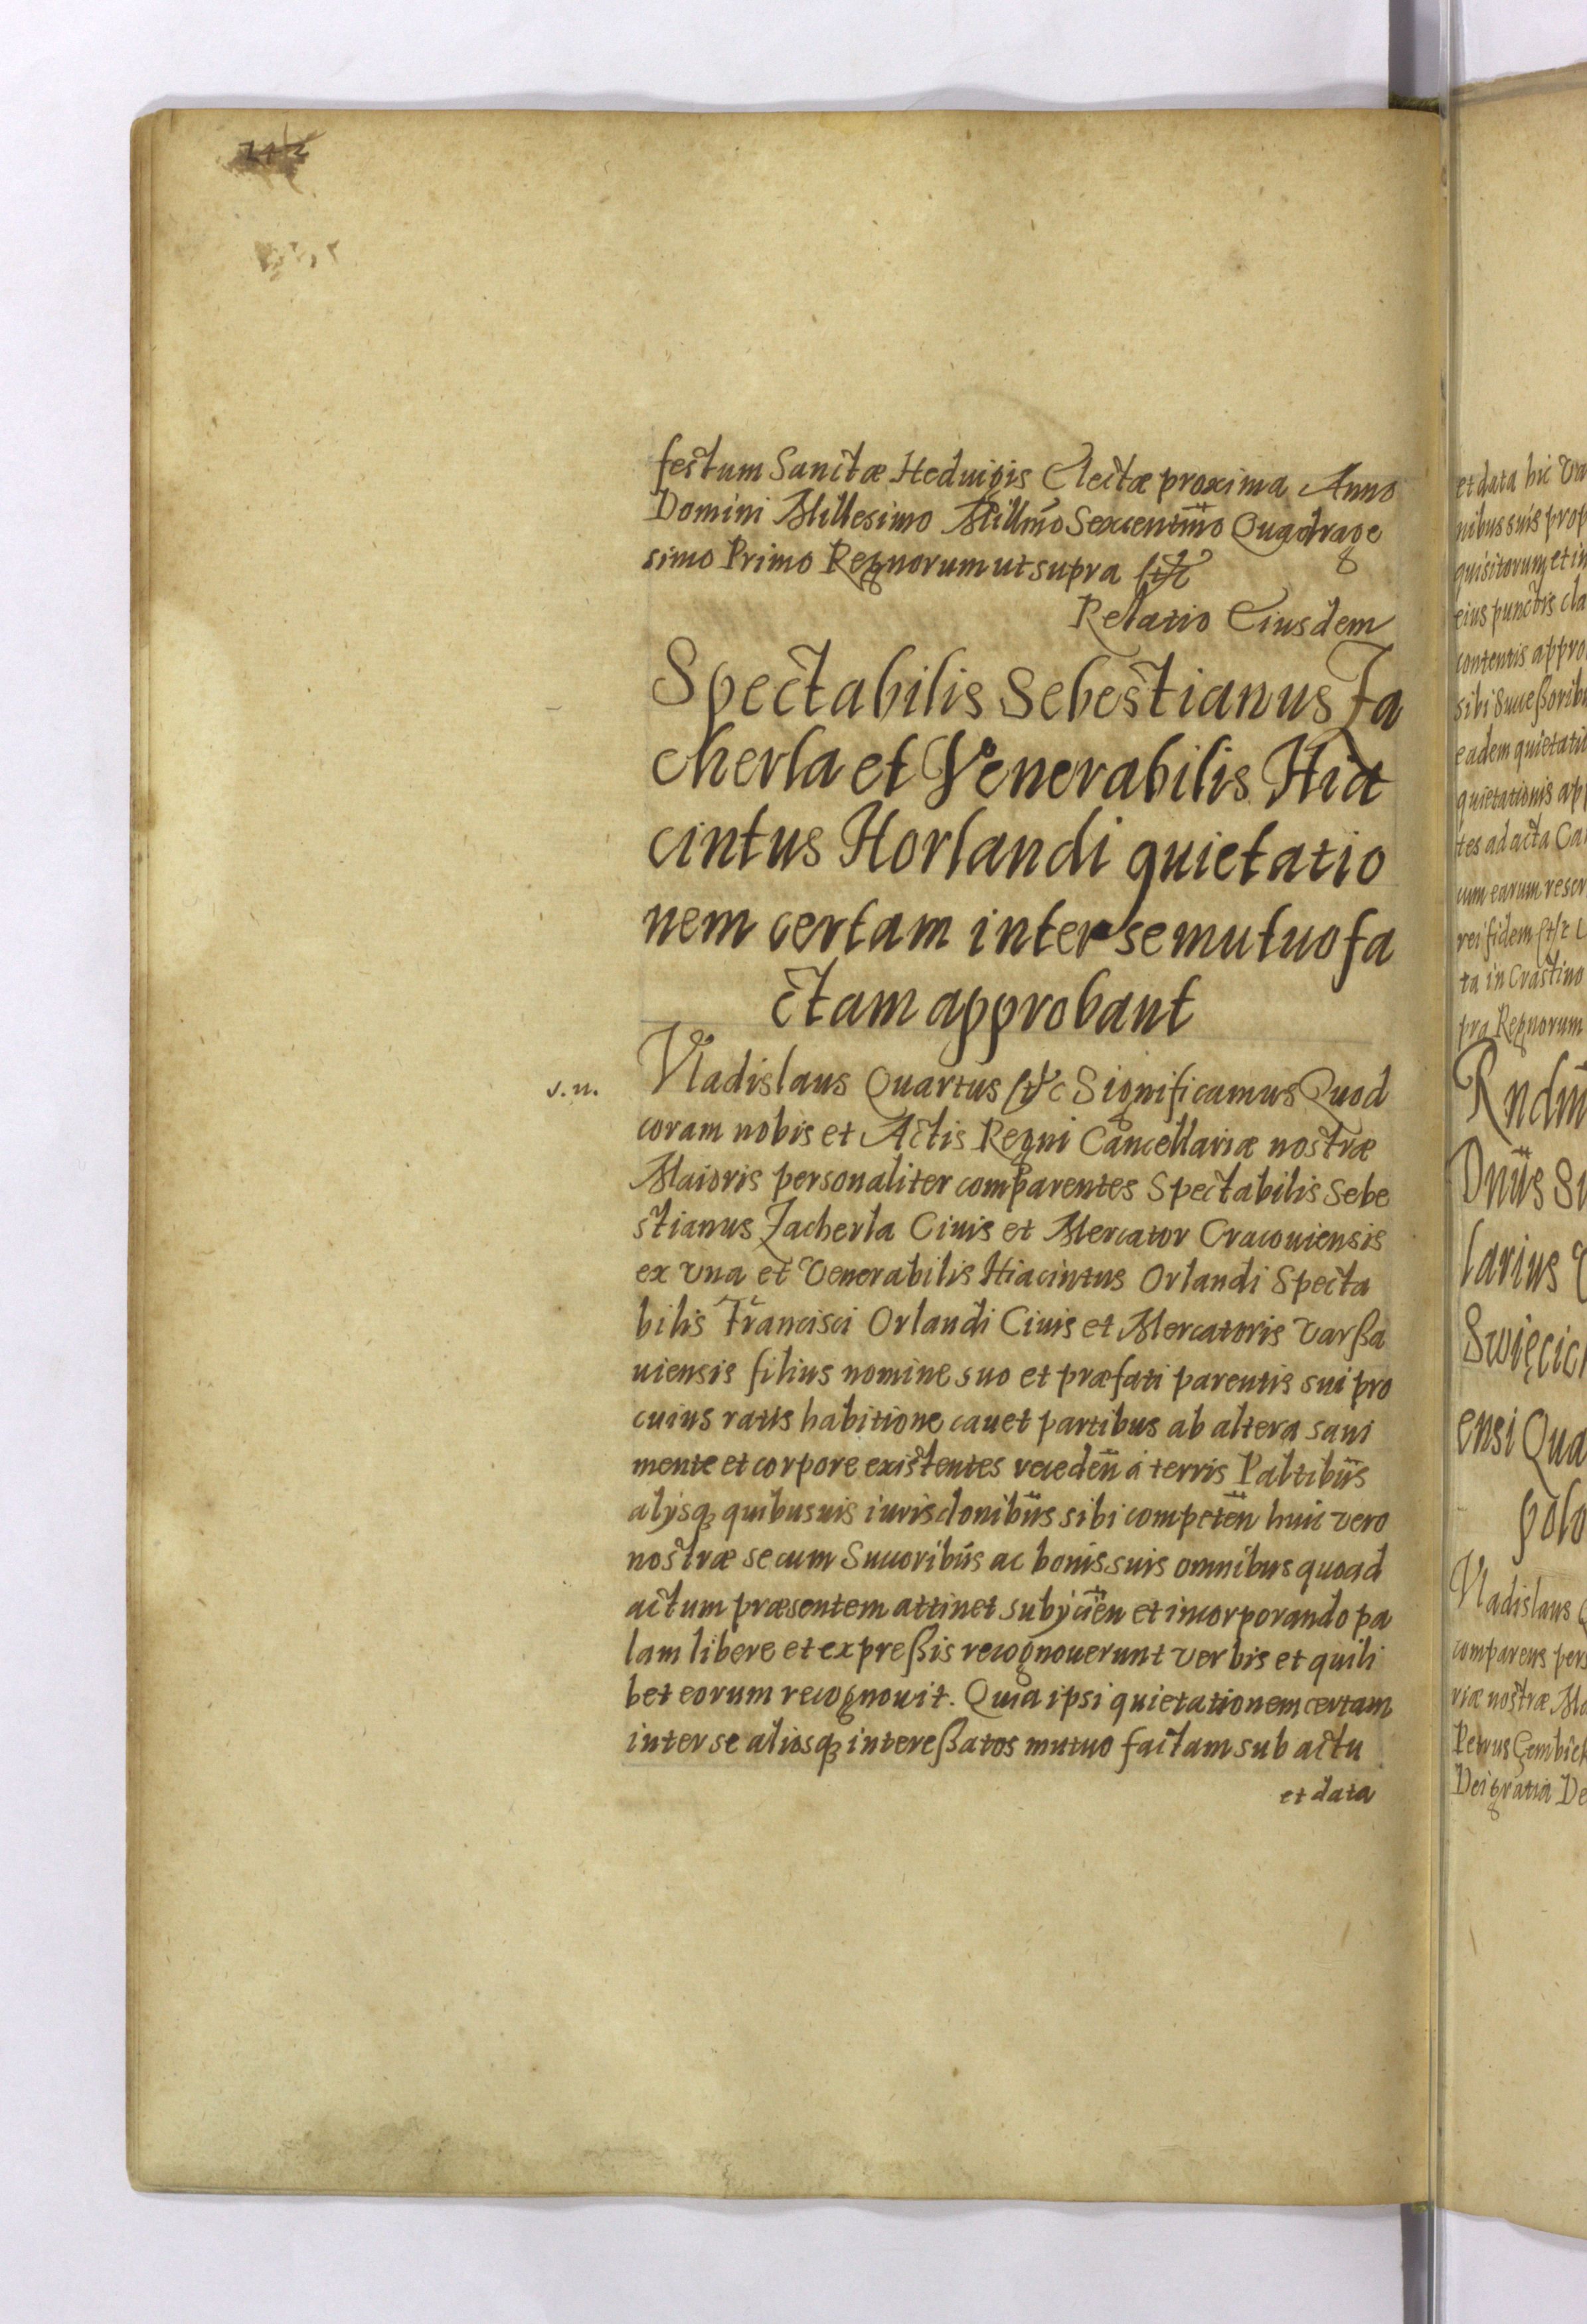 festum Sanctæ Heduigis Electæ proxima Anno
Domini Millesimo Millm̃o Sexcentm̃o Quadrage
simo Primo Regnorum ut supra &c
Relatio Eiusdem
Spectabilis Sebestianus Za
cherla et Venerabilis Hia
cintus Horlandi quietatio
nem certam inter se mutuo fa
ctam approbant
Vladislaus Quartus &c Significamus Quod
coram nobis et Actis Regni Cancellariæ nostræ
Maioris personaliter comparentes Spectabilis Sebe
stianus Zacherla Ciuis et Mercator Cracouiensis
ex vna et Venerabilis Hiacintus Orlandi Specta
bilis Francisci Orlandi Ciuis et Mercatoris Varßa
uiensis filius nomine suo et præfati parentis sui pro
cuius ratis habitione cauet partibus ab altera sani
mente et corpore existentes receden̄ á terris Paltibus̄
alijsq; quibusuis iurisdonibus̄ sibi competen̄ huic vero
nostræ se cum Succoribus̄ ac bonis suis omnibus quoad
actum præsentem attinet subijcien̄ et incorporando pa
lam libere et expreßis recognouerunt verbis et quili
bet eorum recognouit. Quia ipsi quietationem certam
inter se aliosq; intereßatos mutuo factam sub actu
et data
s. n.
et data hic
nibus suis prop
quisitorum et in
eius punctis cla
contentis appro
sibi Succeßoribu
eadem quietatio
quietationis app
tes ad acta Can
cum earum
rei fidem &c
ta in Crastino
pra Regnorum
Rndm̄
Dnūs
larius
Swięcic
ensi Qua
polo
Vladislaus
comparens pers
riæ nostræ Ma
Petrus Gembick
Dei gratia